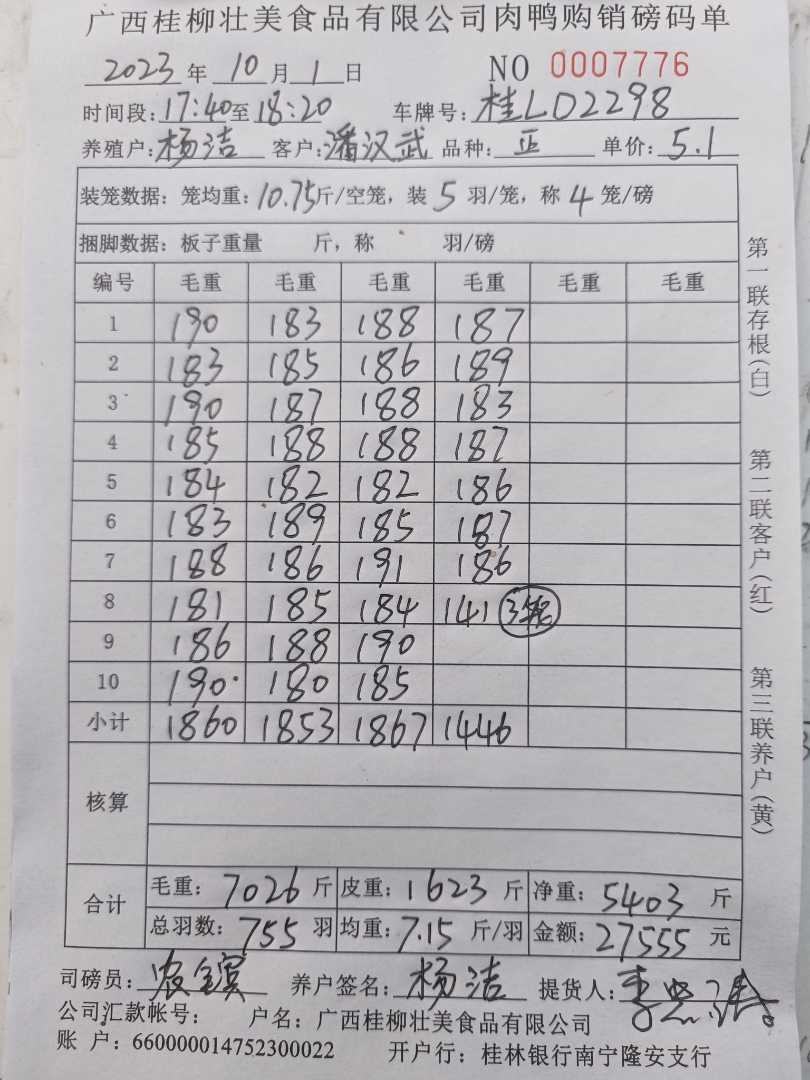 广西桂柳壮美食品有限公司肉鸭购销磅码单
2023年10月1日 NO 0007776
时间段:17:40至18:20 车牌号:桂LD2298
养殖户:杨洁 客户:潘汉武 品种:正 单价:5.1
装笼数据:笼均重:10.75斤/空笼,装5羽/笼,称4笼/磅
捆脚数据:板子重量 斤,称 羽/磅
编号 毛重 毛重 毛重 毛重 毛重 毛重
1 190 183 188 187
2 183 185 186 189
3 190 187 188 183
4 185 188 188 187
5 184 182 182 186
6 183 189 185 187
7 188 186 191 186
8 181 185 184 141 3笼
9 186 188 190
10 190 180 185
小计 1860 1853 1867 1446
核算
合计 毛重:7026斤 皮重:1623斤 净重:5403斤
总羽数:755羽 均重:7.15斤/羽 金额:27555元
司磅员:农 养户签名:杨洁 提货人:李
公司汇款帐号: 户名:广西桂柳壮美食品有限公司
账 户:660000014752300022 开户行:桂林银行南宁隆安支行
第一联存根(白)
第二联客户(红)
第三联养户(黄)